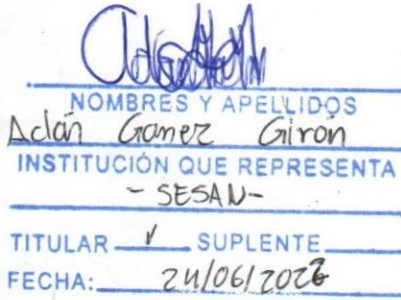 NOMBRES Y APELLIDOS
Adán Gamez Girón
INSTITUCIÓN QUE REPRESENTA
- SESAN-
TITULAR ✓ SUPLENTE
FECHA: 24/06/2022